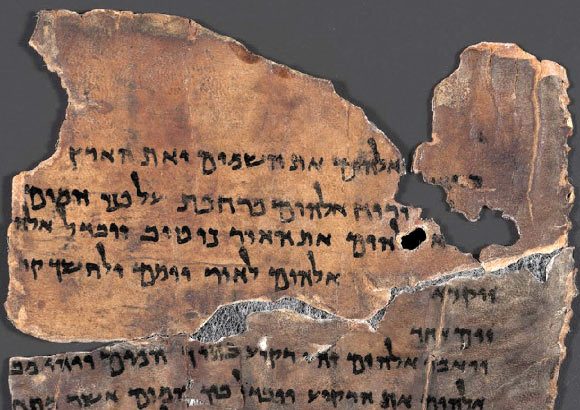 אלהים את השמים ואת הארץ
ורוח אלהים מרחפת על פני המים
אלהים את האור כי טוב ויבדל אלה
אלהים לאור יומם ולחשך קר
ויקרא
ויאמר אלהים יהי רקיע בתוך המים ויהי מב
אלהים את הרקיע ויבדל בין המים אשר מתח